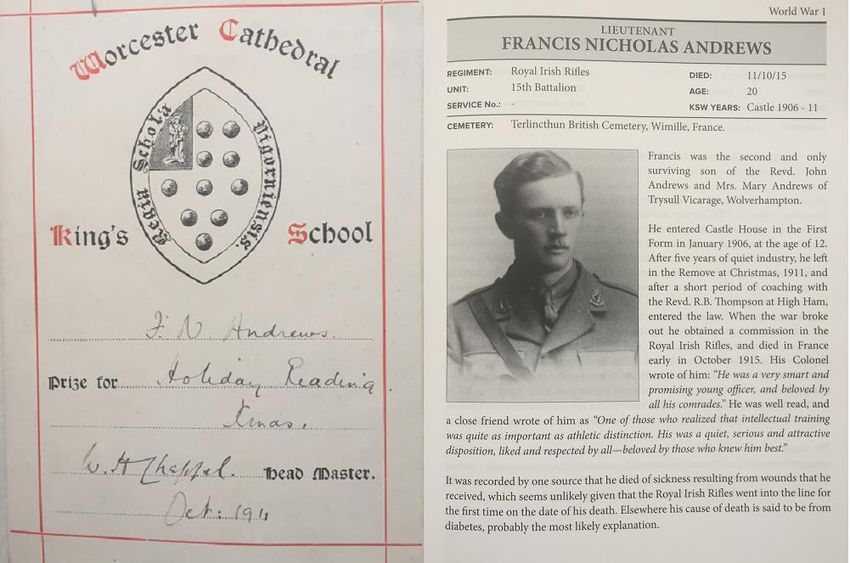 Worcester Cathedral
Regia Schola Vigorniensis.
King's School
F. N. Andrews.
Prize for Holiday Reading
Xmas.
W. H. Chappel. Head Master.
Oct: 1911
World War I
LIEUTENANT
FRANCIS NICHOLAS ANDREWS
REGIMENT: Royal Irish Rifles DIED: 11/10/15
UNIT: 15th Battalion AGE: 20
SERVICE No.: - KSW YEARS: Castle 1906 - 11
CEMETERY: Terlincthun British Cemetery, Wimille, France.
Francis was the second and only
surviving son of the Revd. John
Andrews and Mrs. Mary Andrews of
Trysull Vicarage, Wolverhampton.
He entered Castle House in the First
Form in January 1906, at the age of 12.
After five years of quiet industry, he left
in the Remove at Christmas, 1911, and
after a short period of coaching with
the Revd. R.B. Thompson at High Ham,
entered the law. When the war broke
out he obtained a commission in the
Royal Irish Rifles, and died in France
early in October 1915. His Colonel
wrote of him: "He was a very smart and
promising young officer, and beloved by
all his comrades." He was well read, and
a close friend wrote of him as "One of those who realized that intellectual training
was quite as important as athletic distinction. His was a quiet, serious and attractive
disposition, liked and respected by all—beloved by those who knew him best."
It was recorded by one source that he died of sickness resulting from wounds that he
received, which seems unlikely given that the Royal Irish Rifles went into the line for
the first time on the date of his death. Elsewhere his cause of death is said to be from
diabetes, probably the most likely explanation.